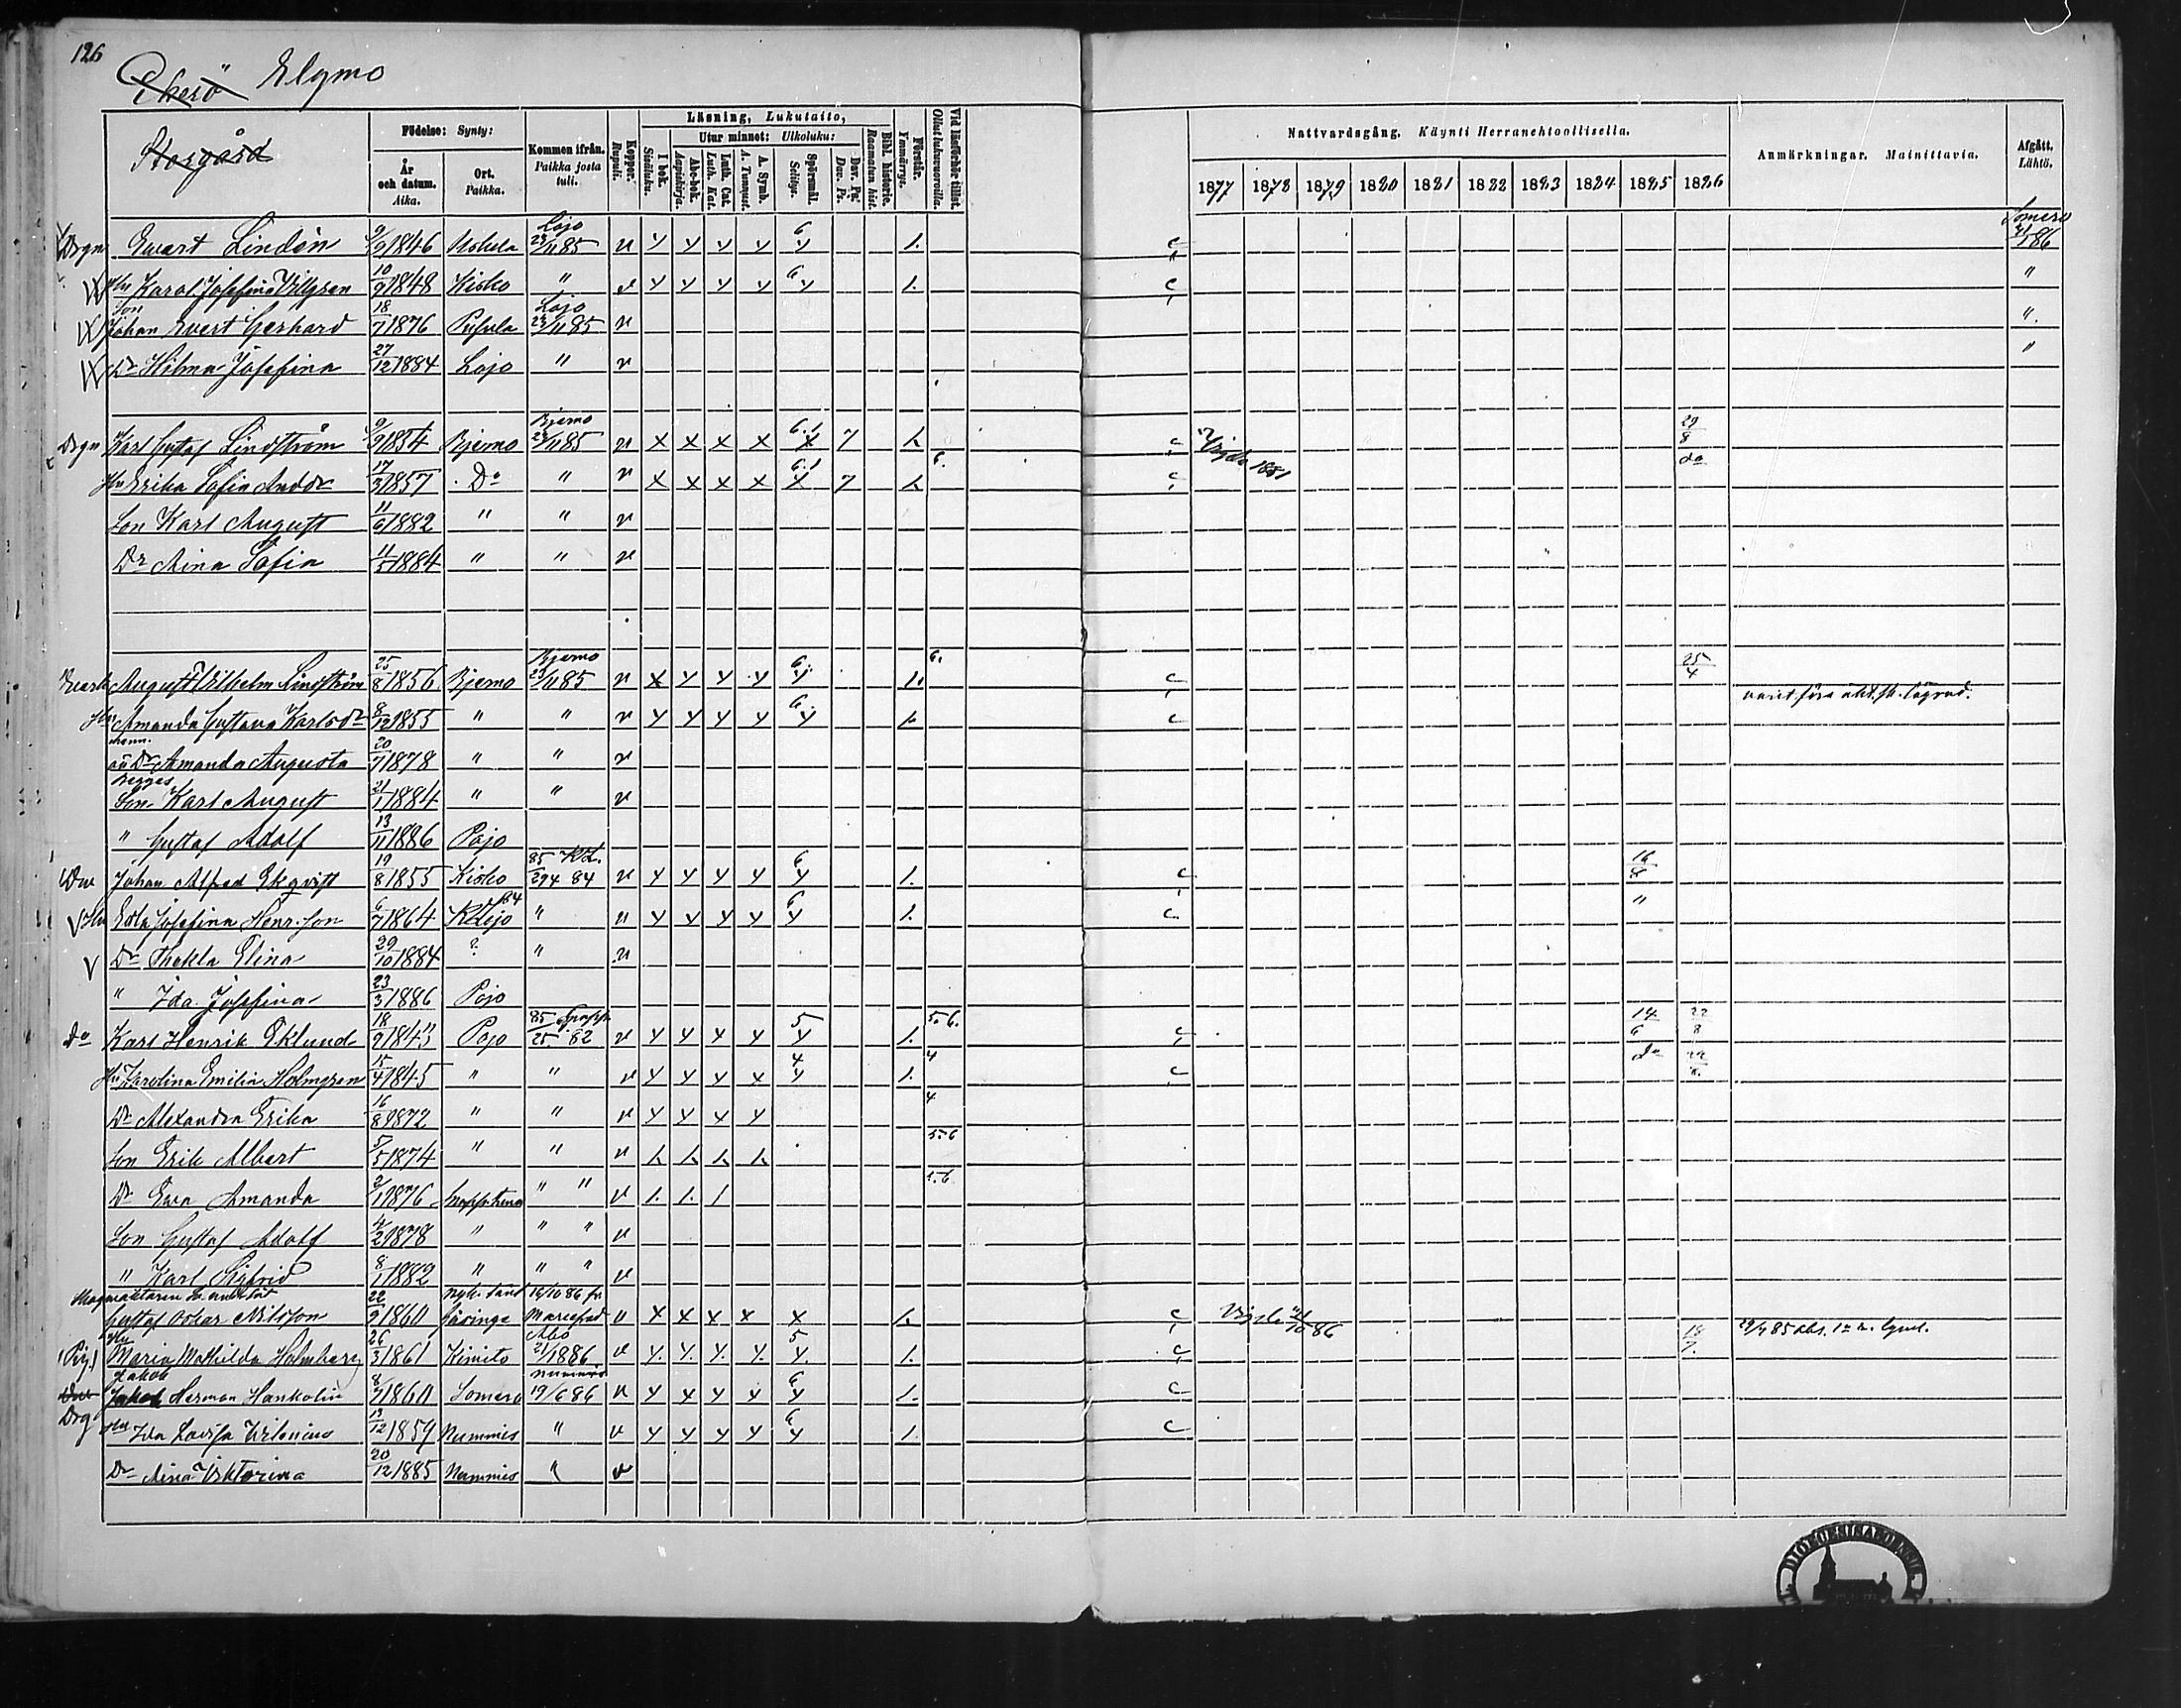 126
Ekerö Elgmo
Storgård
Födelse: Synty:
År och datum. Aika.
Ort. Paikka.
Kommen ifrån. Paikka josta tuli.
Koppor. Rupuli.
Läsning, Lukutaito,
I bok. Sisäluku.
Utur minnet: Ulkoluku:
Abc-bok. Aapiskirja.
Luth. Cat. Luth. Kat.
A. Symb. A. Tunnust.
Spörsmål. Selitys.
Dav. Ps. Dav. Ps.
Bibl. historie. Raamatun hist.
Förstår. Ymmärrys.
Vid läsförhör tillst. Ollut lukuvuoroilla.
Nattvardsgång. Käynti Herranehtoollisella.
1877 1878 1879 1880 1881 1882 1883 1884 1885 1886
Anmärkningar. Mainittavia.
Afgått. Lähtö.
Drgn Evert Lindén 9/9 1846 Uskela Lojo 23/11 85 v y y y y 6 y 1. c Somero 86
Hu Karol. Josefina Villgren 10/9 1848 Kisko " v y y y y 6 y 1. c "
Son Johan Evert Gerhard 18/7 1876 Pusula Lojo 23/11 85 v ".
Dr Hilma Josefina 27/12 1884 Lojo " v "
Drgn Karl Gustaf Lindström 9/9 1854 Bjerno Bjerno 23/11 85 v x x x x 6.1 x 7 c Vigde 1881 29/8
Hu Erika Sofia Anddr 17/3 1857 Do " v x x x x 6.1 x 7 6. c do
Son Karl August 11/6 1882 " " v
Dr Mina Sofia 1884 " " v
August Vilhelm Lindström 25/8 1856 Bjerno Bjerno 23/11 85 v x y y y 6. y 6. c 25/4
Hu Amanda Gustava Karlsdr 8/12 1855 " " v y y y y 6. y c
oä Dr Amanda Augusta 20/7 1878 " " v
begges
Son Karl August 21/1 1884 " " v
" Gustaf Adolf 13/11 1886 Pojo
Johan Alfred Ekqvist 19/8 1855 Kisko 85 KL. 294 84 v y y y y 6 y 1. c 16/8
Hu Edla Josefina Henr.son 6/7 1864 KLojo " v y y y y 6 y 1. c "
Dr Thekla Elina 29/10 1884 ? " v
" Ida Josefina 23/3 1886 Pojo
Do Karl Henrik Eklund 18/9 1843 Pojo 85 25. 82 v y y y y 5 y 1. 5.6. c 14/6 22/8
Hu Karolina Emilia Holmgren 15/4 1845 " " v y y y x 4 y 1. 4 c do
Dr Alexandra Erika 16/8 1872 " " v y y x y 4
Son Erik Albert 5/5 1874 " " v 5.6
Dr Eva Amanda 2/1 1876 " " v 1. 1. 1 5.6
Son Gustaf Adolf 4/2 1878 " " " v
" Karl Sigfrid 8/1 1882 " " " v
Gustaf Oskar Nilsson 22/9 1860 16/10 86 fr. v x x x x x c 86
Hu
(Pig) Maria Mathilda Holmberg 26/3 1861 Kimito Åbo 21/1886 v y. y. y. y. 5 y. 1. c 18/7.
Jakob
Drg Herman Hankolin 8/7 1860 Somero Nummis 19/6 86 v y y y y 6 y 1. c
Hu Ida Lovisa 13/12 1859 Nummis " v y y y y 6 y 1. c
Dr Aina Viktorina 20/12 1885 Nummis " v